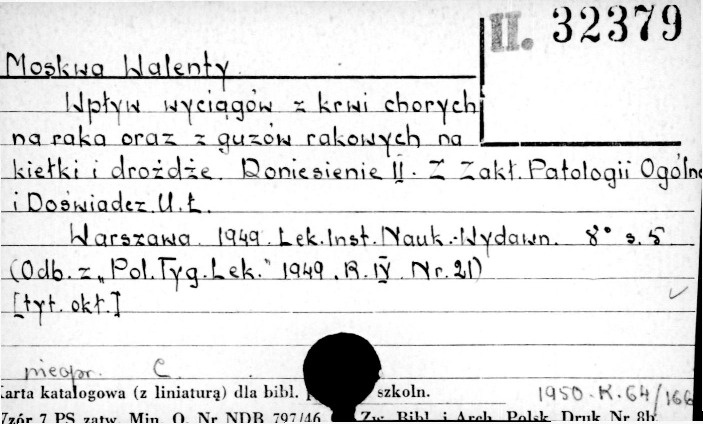 II. 32379
Moskwa Walenty
Wpływ wyciągów z krwi chorych
na raka oraz z guzów rakowych na
kiełki i drożdże. Doniesienie II. Z Zakł. Patologii Ogólne
i Doświadcz. U. Ł.
Warszawa 1949. Lek. Inst. Nauk.-Wydawn. 8° s. 5
(Odb. z „Pol. Tyg. Lek." 1949. R. IV. Nr. 21)
[tyt. okł.]
nieopr. C.
Karta katalogowa (z liniaturą) dla bibl. szkoln.
1950. K. 64/166
Wzór 7 PS zatw. Min. O. Nr NDB 797/46 Zw. Bibl. i Arch. Polsk. Druk Nr 8b